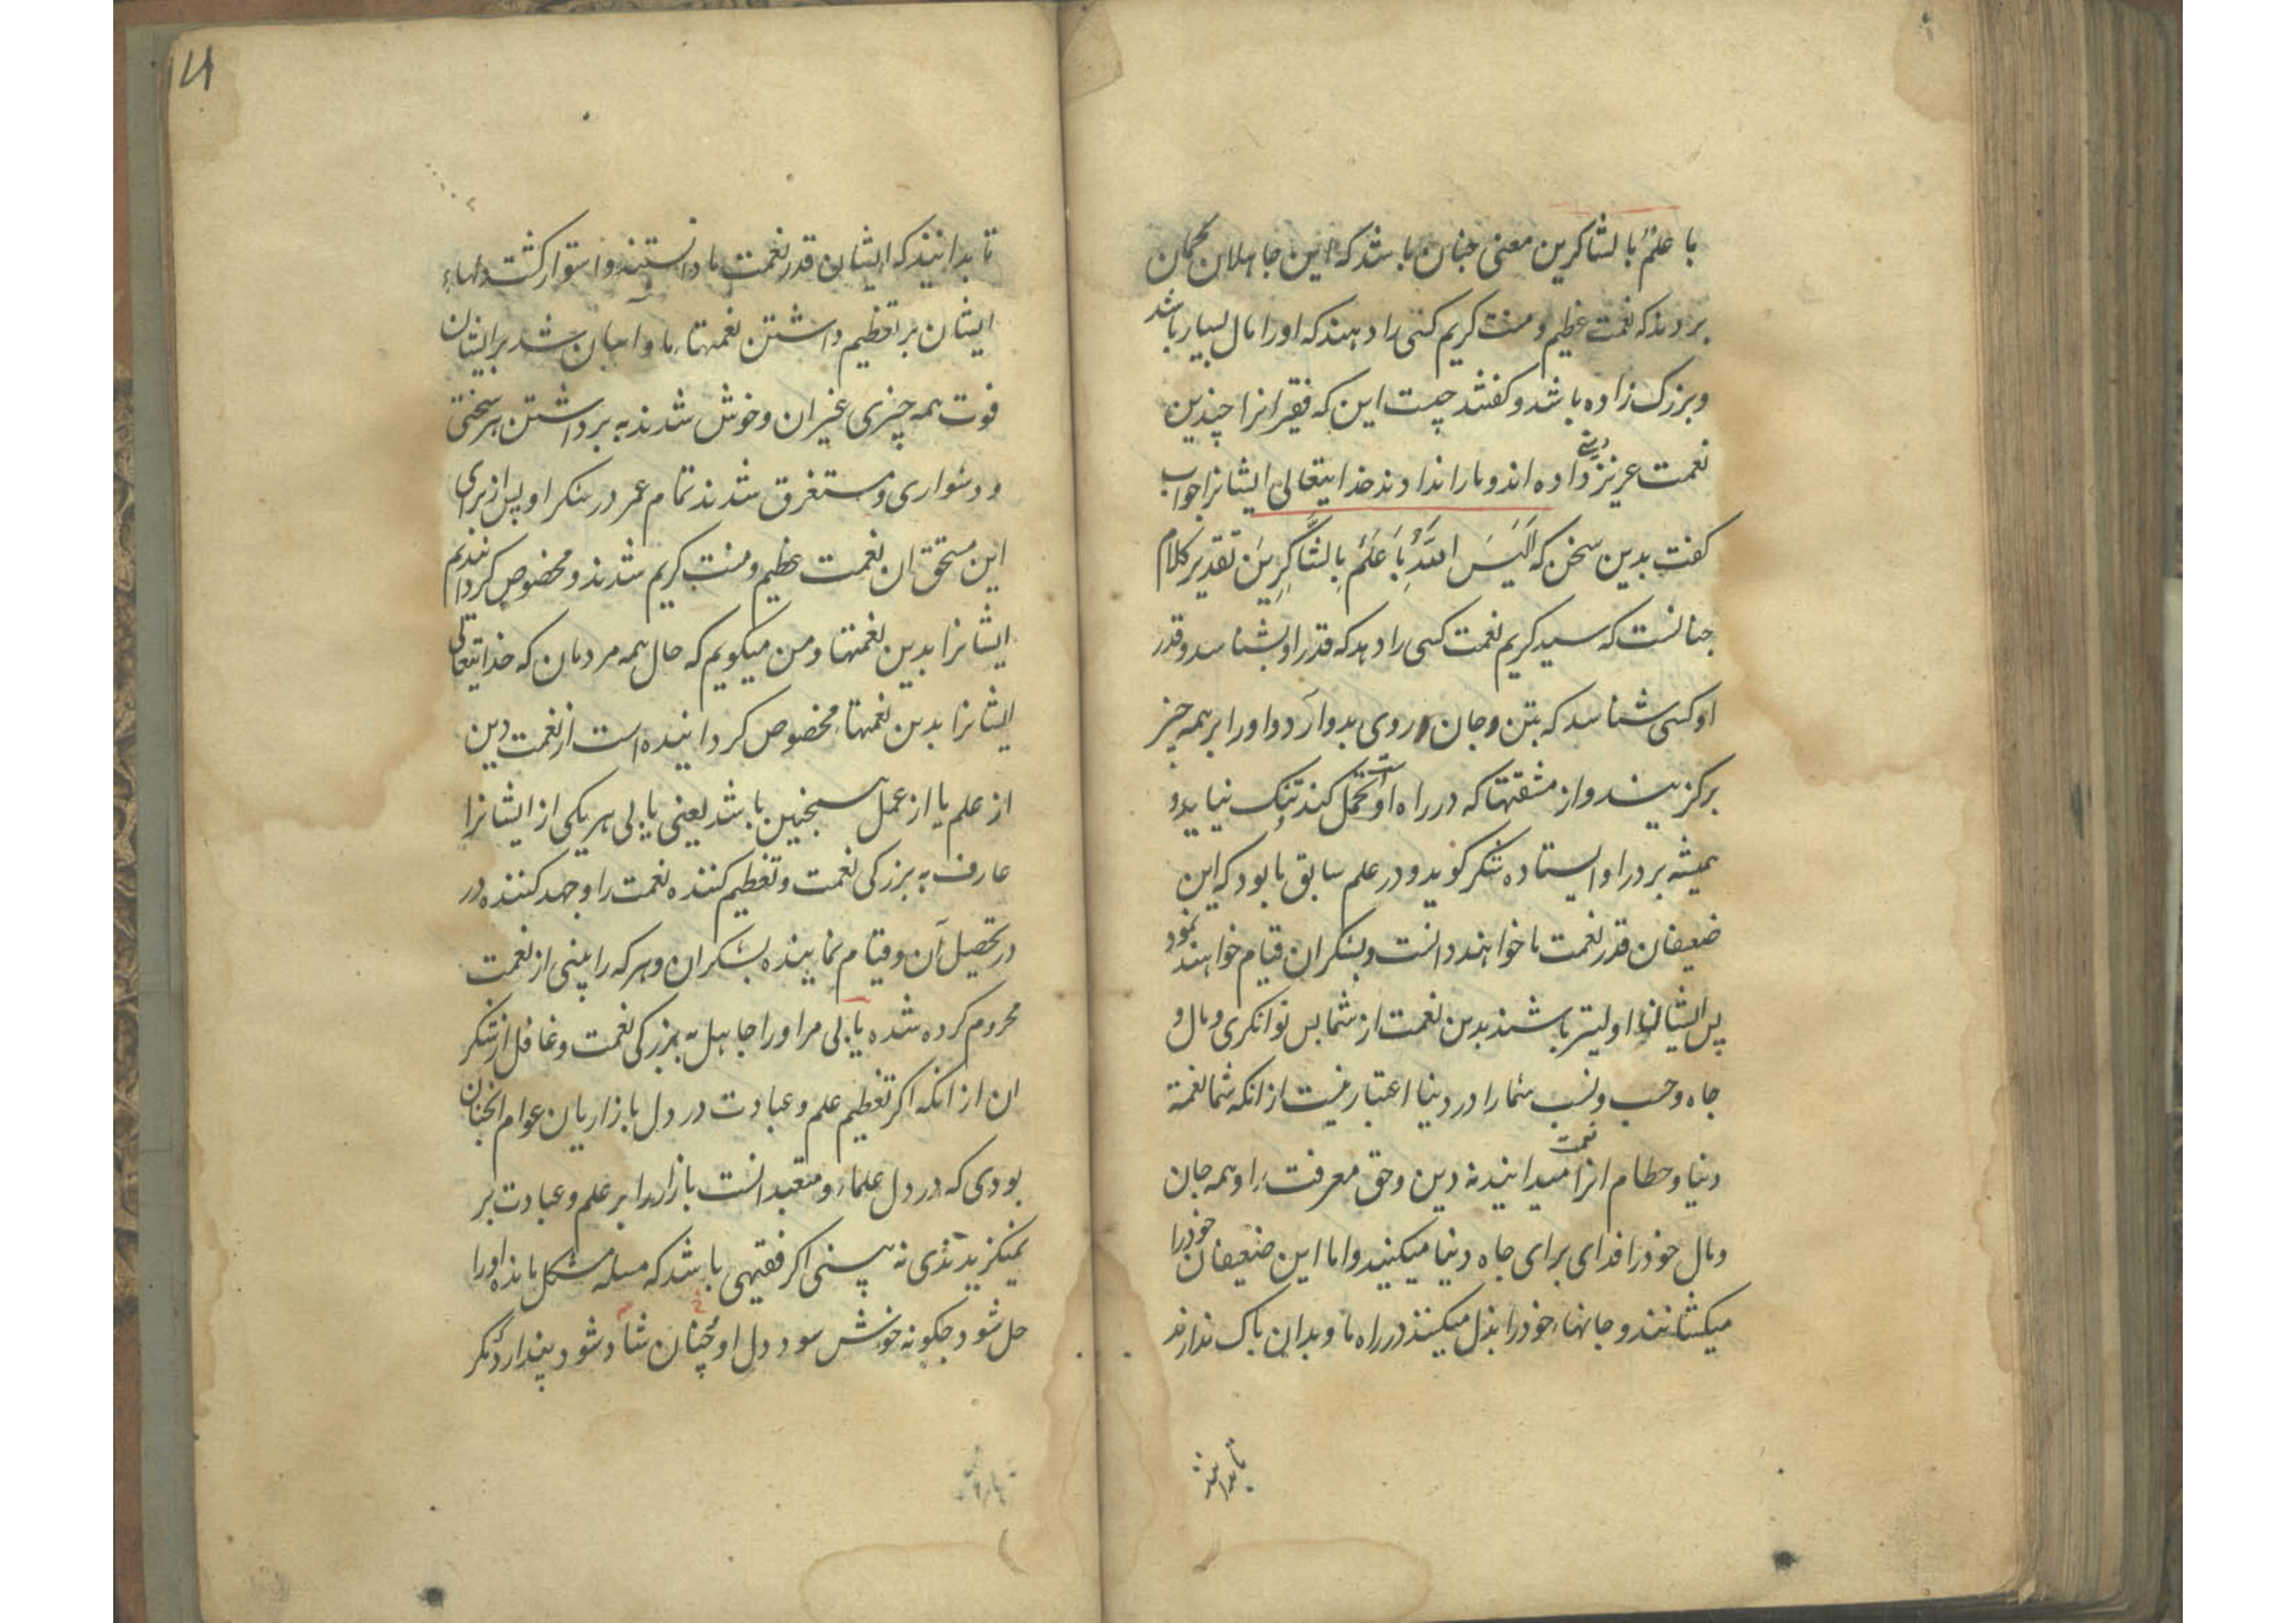 با علم بالشاکرین معنی جنان باشد که این جاهلان کمان
بردند که نعمت عظیم و منت کریم کسی را دهند که او را مال بسیار باشد
و بزرک زاده باشد و کفتند چیست این که فقیرانرا چندین
نعمت عزیز دینی داده اند و ما را ندادند خدایتعالی ایشانرا جواب
کفت بدین سخن که اَلَیسَ اللّٰهُ بِاَعلَمَ بِالشَّاکِرِینَ تقدیر کلام
جنانست که سید کریم نعمت کسی را دهد که قدر او بشناسد و قدر
او کسی شناسد که بتن و جان و روی بدو آرد و او را بر همه چیز
برکزیند و از مشقتها که در راه او تحمل کند تنک نیاید و
همیشه بر در او ایستاده شکر کوید و در علم سابق ما بود که این
ضعیفان قدر نعمت ما خواهند دانست و بشکر ان قیام خواهند نمود
پس ایشان اولیتر باشند بدین نعمت از شما پس توانکری و مال و
جاه و حسب و نسب شما را در دنیا اعتبار نیست از انکه شما نعمة
دنیا و حطام انرا نعمت میدانید نه دین و حق معرفت را و همه جان
و مال خود را فدای برای جاه دنیا میکنید و اما این ضعیفان خود را
میکشانند و جانهاء خود را بذل میکنند در راه ما و بدان باک ندارند
تا بدانند
۷۱
تا بدانیند که ایشان قدر نعمت ما دانستند و استوار کشت دلهاء
ایشان بر تعظیم داشتن نعمتهاء ما و آسان شد بر ایشان
فوت همه چیزی غیر ان و خوش شدند به برداشتن هر سختی
و دشواری و مستغرق شدند تمام عمر در شکر او پس از برای
این مستحق ان نعمت عظیم و منت کریم شدند و مخصوص کردانیدیم
ایشانرا بدین نعمتها و من میکویم که حال همه مردمان که خدایتعالی
ایشانرا بدین نعمتها مخصوص کردانیده است از نعمت دین
از علم یا از عمل همجنین باشد یعنی یابی هر یکی از ایشانرا
عارف به بزرکی نعمت و تعظیم کننده نعمت را و جهد کننده در
در تحصیل آن و قیام نماینده بشکر ان و هر که را بینی از نعمت
محروم کرده شده یابی مر او را جاهل به بزرکی نعمت و غافل از شکر
ان از انکه اکر تعظیم علم و عبادت در دل بازاریان عوام انجنان
بودی که در دل علماء و متعبدانست بازار را بر علم و عبادت بر
نمیکزیدندی نه بینی اکر فقیهی باشد که مسله مشکل مانده او را
حل شود جکونه خوش شود دل او چنان شاد شود پندارد مکر